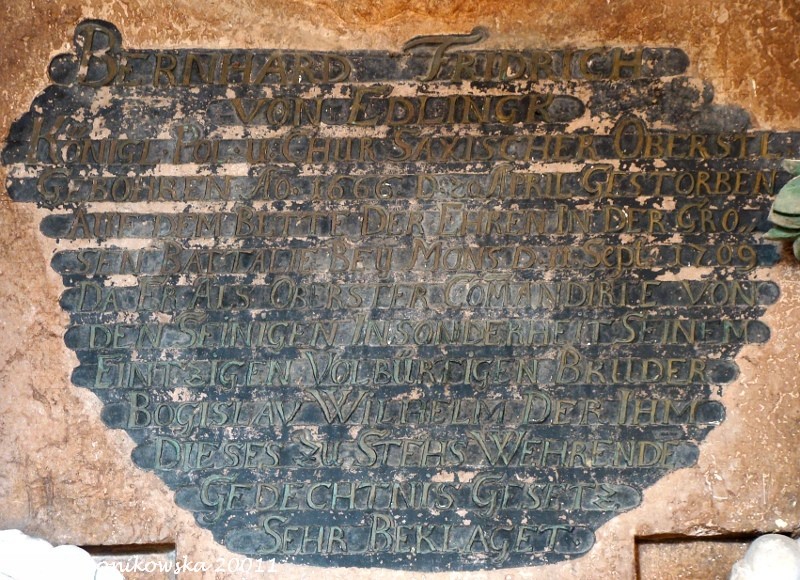 BERNHARD FRIDRICH
VON EDLINGK
KÖNIGL POL. U. CHUR SAXISCHER OBERSTL
GEBOHREN AO. 1666 D. 20 APRIL GESTORBEN
AUF DEM BETTE DER EHREN IN DER GRO„
SEN BATTALIE BEIJ MONS D. 11 SEPT. 1709
DA ER ALS OBERSTER COMANDIRTE VON
DEN SEINIGEN INSONDERHEIT SEINEM
EINTZIGEN VOLBÜRTIGEN BRUDER
BOGISLAV WILHELM DER IHM
DIESES ZU STEHS WEHRENDE
GEDECHTNIS GESETZ
SEHR BEKLAGET
onikowska 20011